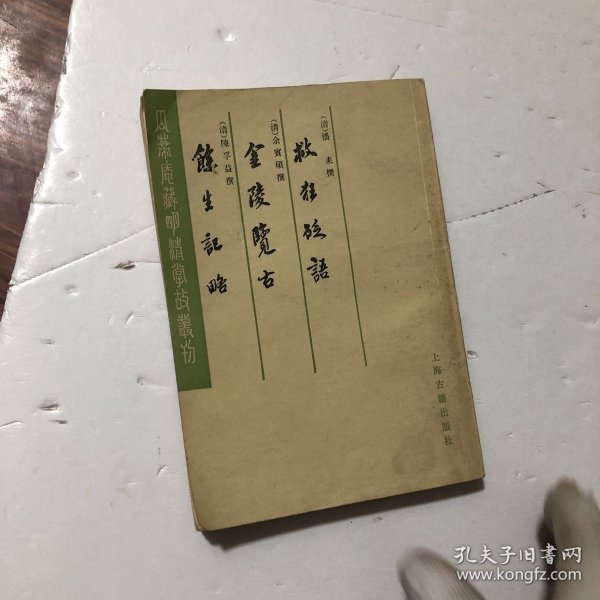 (清)潘 耒撰
救狂砭語
(清)余賓碩撰
金陵覽古
(清)陳孚益撰
餘生記略
瓜蒂庵藏明清掌故叢刊
上海古籍出版社
孔夫子旧书网
www.kongfz.com